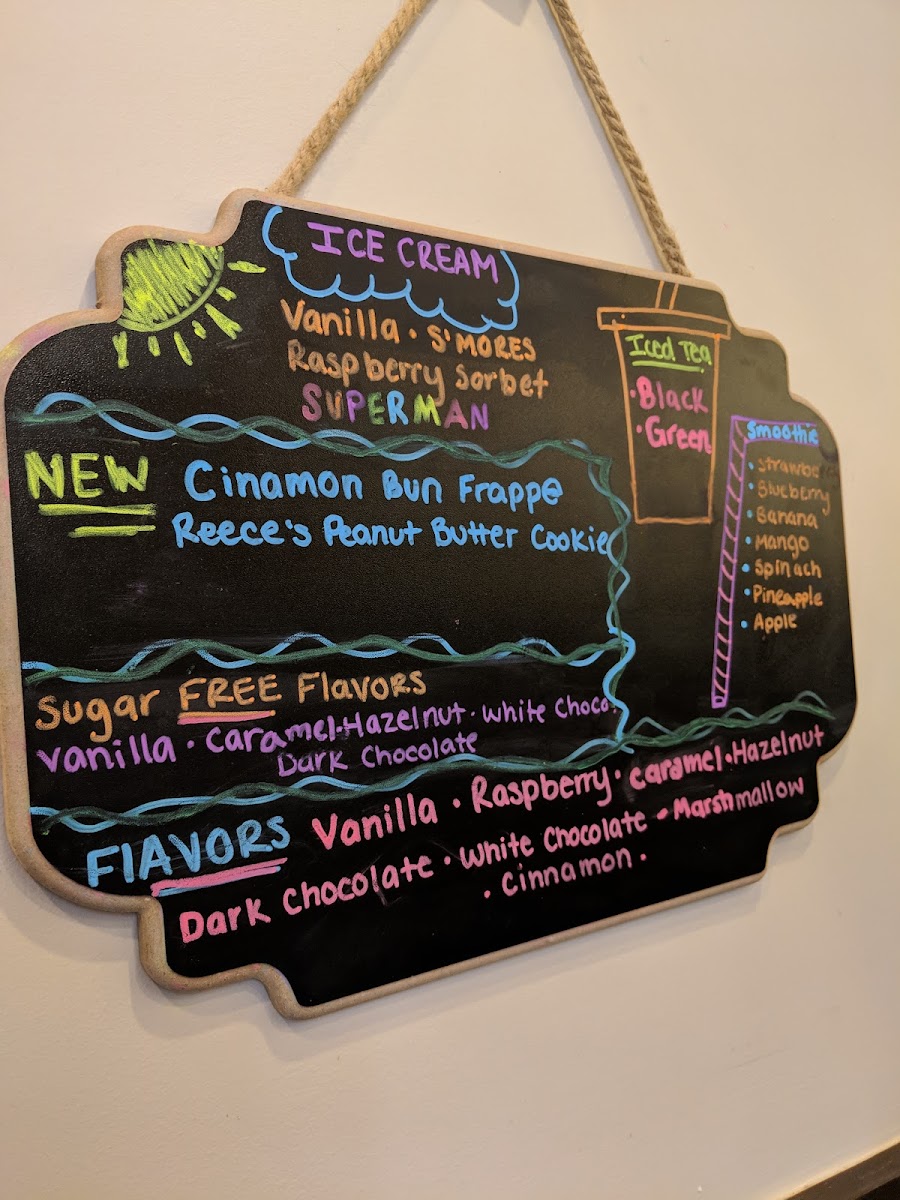 ICE CREAM
Vanilla · S'MORES
Raspberry Sorbet
SUPERMAN
Iced Tea
· Black
· Green
Smoothie
·
· Blueberry
· Banana
· Mango
· Spinach
· Pineapple
· Apple
NEW Cinamon Bun Frappe
Reece's Peanut Butter Cookie
Sugar FREE Flavors
Vanilla · Caramel · Hazelnut · White Choco.
Dark Chocolate
FlAVORS Vanilla · Raspberry · Caramel · Hazelnut
Dark Chocolate · White Chocolate · Marshmallow
· Cinnamon ·